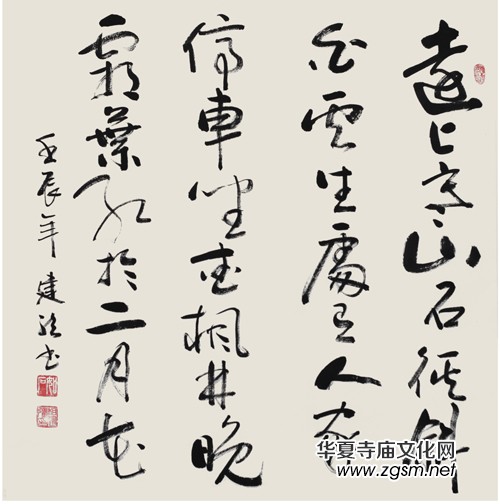 遠上寒山石徑斜
白雲生處有人家
停車坐愛楓林晚
霜葉紅於二月花
壬辰年 建 书
华夏寺庙文化网
http://www.zgsm.net